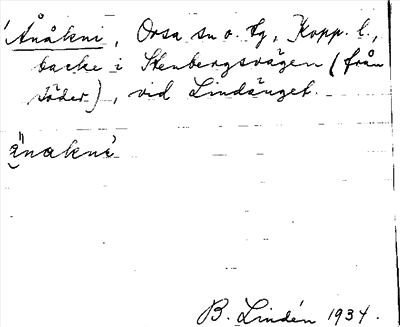 'Änåkni, Orsa sn o. tg, Kopp. l.,
backe i Stenbergsvägen (från
söder), vid Lindänget.
änakni
B. Lindén 1934.